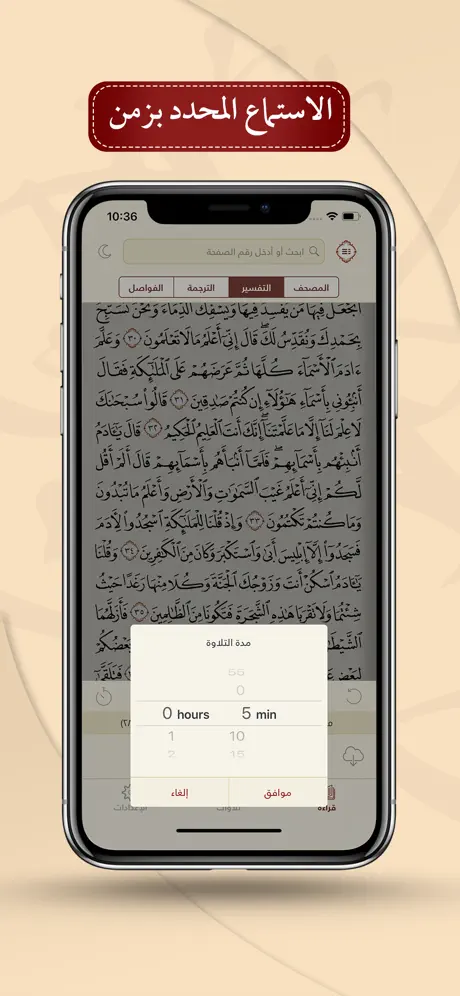 الاستماع المحدد بزمن
10:36
ابحث أو أدخل رقم الصفحة
المصحف التفسير الترجمة الفواصل
أَتَجْعَلُ فِيهَا مَن يُفْسِدُ فِيهَا وَيَسْفِكُ الدِّمَاءَ وَنَحْنُ نُسَبِّحُ
بِحَمْدِكَ وَنُقَدِّسُ لَكَ ۖ قَالَ إِنِّي أَعْلَمُ مَا لَا تَعْلَمُونَ ٣٠ وَعَلَّمَ
ءَادَمَ الْأَسْمَاءَ كُلَّهَا ثُمَّ عَرَضَهُمْ عَلَى الْمَلَٰئِكَةِ فَقَالَ
أَنۢبِـُٔونِي بِأَسْمَاءِ هَٰؤُلَاءِ إِن كُنتُمْ صَٰدِقِينَ ٣١ قَالُوا سُبْحَٰنَكَ
لَا عِلْمَ لَنَا إِلَّا مَا عَلَّمْتَنَا ۖ إِنَّكَ أَنتَ الْعَلِيمُ الْحَكِيمُ ٣٢ قَالَ يَٰٓـَٔادَمُ
أَنۢبِئْهُم بِأَسْمَائِهِمْ ۖ فَلَمَّا أَنۢبَأَهُم بِأَسْمَائِهِمْ قَالَ أَلَمْ أَقُل
لَّكُمْ إِنِّي أَعْلَمُ غَيْبَ السَّمَٰوَٰتِ وَالْأَرْضِ وَأَعْلَمُ مَا تُبْدُونَ
وَمَا كُنتُمْ تَكْتُمُونَ ٣٣ وَإِذْ قُلْنَا لِلْمَلَٰئِكَةِ اسْجُدُوا لِـَٔادَمَ
فَسَجَدُوا إِلَّا إِبْلِيسَ أَبَىٰ وَاسْتَكْبَرَ وَكَانَ مِنَ الْكَٰفِرِينَ ٣٤ وَقُلْنَا
يَٰٓـَٔادَمُ اسْكُنْ أَنتَ وَزَوْجُكَ الْجَنَّةَ وَكُلَا مِنْهَا رَغَدًا حَيْثُ
شِئْتُمَا وَلَا تَقْرَبَا هَٰذِهِ الشَّجَرَةَ فَتَكُونَا مِنَ الظَّٰلِمِينَ ٣٥ فَأَزَلَّهُمَا
مدة التلاوة
55
0
0 hours 5 min
1 10
2 15
موافق إلغاء
قراءة